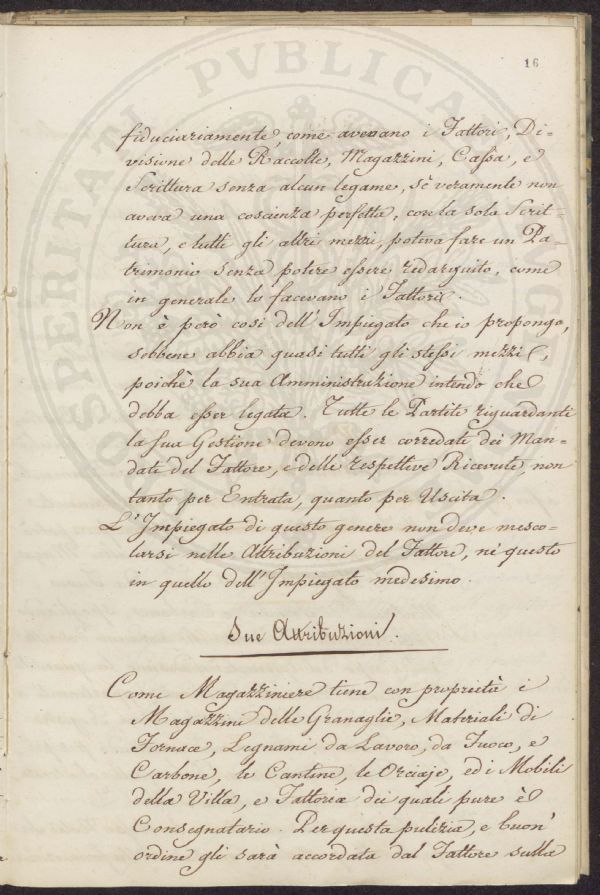 16
fiduciariamente, come avevano i Fattori, Di-
visione delle Raccolte, Magazzini, Cassa, e
Scrittura senza alcun legame, sè veramente non
aveva una coscienza perfetta, con la sola Scrit-
tura, e tutti gli altri mezzi, poteva fare un Pa-
trimonio senza potere essere redarguito, come
in generale lo facevano i Fattori.
Non è però così dell'Impiegato che io propongo,
sebbene abbia quasi tutti gli stessi mezzi,
poichè la sua Amministrazione intendo che
debba esser legata. Tutte le Partite riguardanti
la sua Gestione devono esser corredate dei Man-
dati del Fattore, e delle respettive Ricevute, non
tanto per Entrata, quanto per Uscita.
L'Impiegato di questo genere non deve mesco-
larsi nelle Attribuzioni del Fattore, nè questo
in quelle dell'Impiegato medesimo.
Sue Attribuzioni.
Come Magazziniere tiene con proprietà i
Magazzini delle Granaglie, Materiali di
Fornace, Legnami da Lavoro, da Fuoco, e
Carbone, le Cantine, le Orciaje, ed i Mobili
della Villa, e Fattoria dei quali pure è
Consegnatario. Per questa pulizia, e buon'
ordine gli sarà accordata dal Fattore sulla
PROSPERITATI PVBLICAE AVG